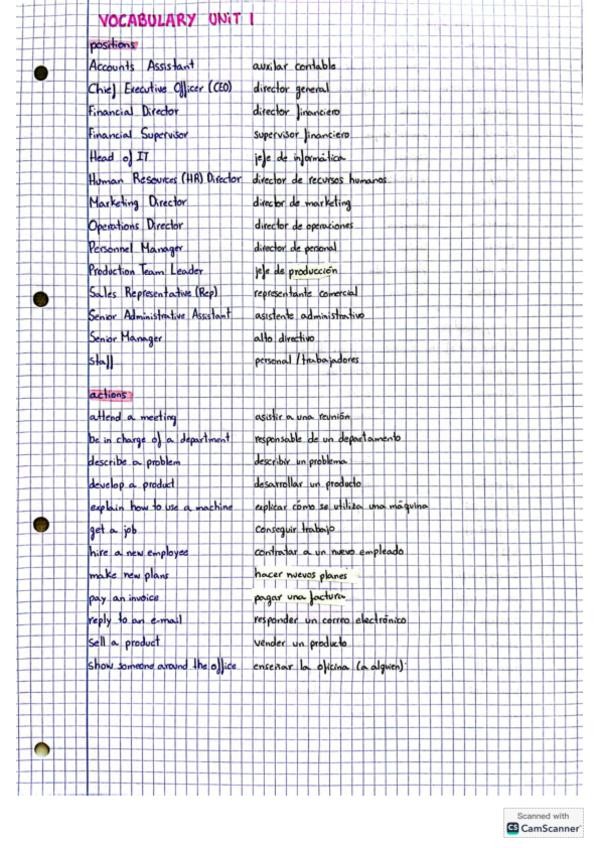 VOCABULARY UNIT 1
positions
Accounts Assistant auxilar contable
Chief Executive Officer (CEO) director general
Financial Director director financiero
Financial Supervisor supervisor financiero
Head of IT jefe de informática
Human Resources (HR) Director director de recursos humanos
Marketing Director director de marketing
Operations Director director de operaciones
Personnel Manager director de personal
Production Team Leader jefe de producción
Sales Representative (Rep) representante comercial
Senior Administrative Assistant asistente administrativo
Senior Manager alto directivo
Staff personal / trabajadores
actions
attend a meeting asistir a una reunión
be in charge of a department responsable de un departamento
describe a problem describir un problema
develop a product desarrollar un producto
explain how to use a machine explicar cómo se utiliza una máquina
get a job conseguir trabajo
hire a new employee contratar a un nuevo empleado
make new plans hacer nuevos planes
pay an invoice pagar una factura
reply to an e-mail responder un correo electrónico
sell a product vender un producto
show someone around the office enseñar la oficina (a alguien)
Scanned with
CS CamScanner